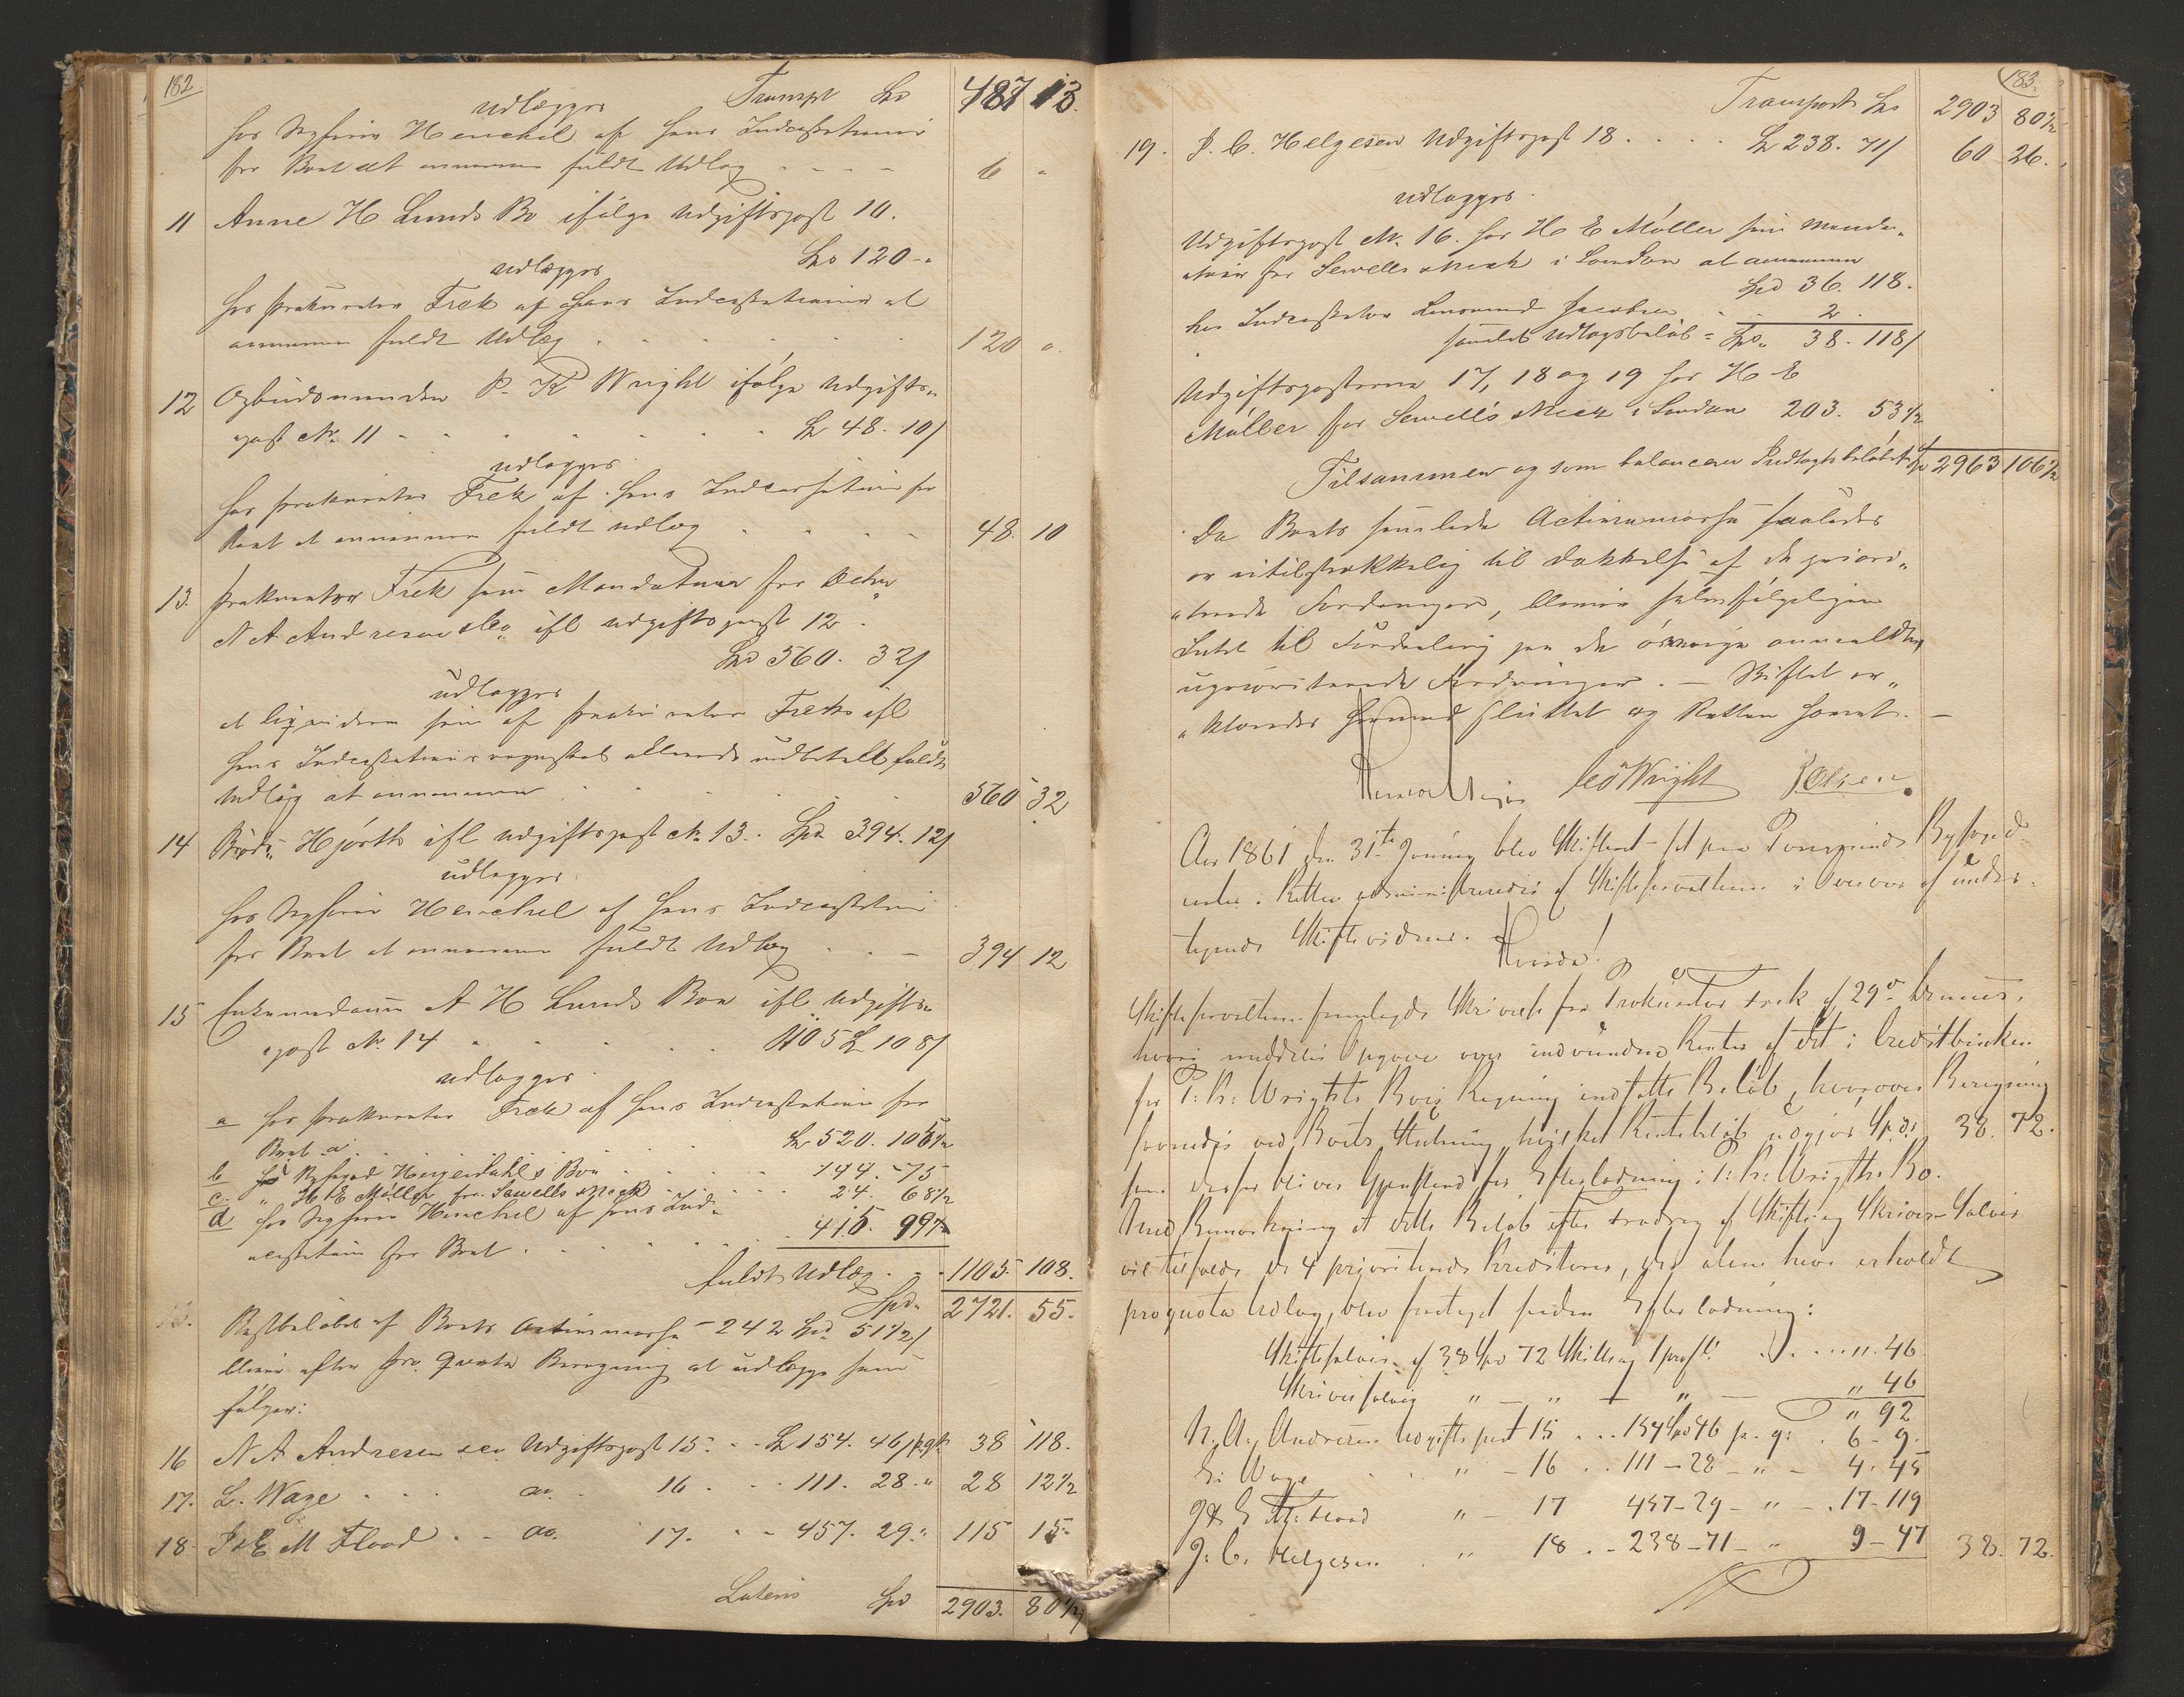 182
Transpt Spd 487 13.
udlægges
hos Sagfører Henckel af hans Indcassationer
for Boet at annamme fuldt Udlæg . . . . 6 "
11 Anne H Lunds Bo ifölge Udgiftspost 10.
Spd 120 - "
udlægges
hos Prokurator Frek af hans Indcassationer at
annamme fuldt Udlæg . . . . 120 "
12 Ombudsmanden P. K Wright ifölge Udgifts„
post No. 11 . . . . Sp 48. 10/
udlægges
hos Prokurator Frek af hans Indcassation for
Boet at annamme fuldt Udlæg . . . . 48. 10
13. Prokurator Frek som Mandatarius for
N A Andresen & Co ifl Udgiftspost 12.
Spd 560. 32/
udlægges
at liqvidere som af Prokurator Frek ifl
hans Indcassationsregnskab allerede udbetalt fuldt
Udlæg at annamme . . . . 560 32
14 Brødr. Hjorth ifl Udgiftspost No 13. Spd 394. 12/
udlægges
hos Sagfører Henckel af hans Indcassation
for Boet at annamme fuldt Udlæg . . - 394 12
15 Enkemadame A H Lunds Boe ifl Udgifts„
post No. 14 . . . . 1105 Sp 108/
udlægges
a hos Prokurator Frek af hans Indcassation for
Boet a. . . . . Sp 520. 105½
b hos Byfoged Heyerdahls Boe . . . . 144. 75
c. " H E Möller for Sewells & Neck . . . . 24. 68½
d hos Sagfører Henckel af hans Ind„
cassation for Boet . . . . 415. 99½
fuldt Udlæg . - - 1105 108.
Spd. 2721. 55.
Restbeløbet af Boets Activmasse - 242 Spd 51½/
bliver efter pro qvota Beregning at udlægge som
følger:
16 N A Andresen & Co Udgiftspost 15. . - Sp 154. 46/ p. qt. 38 118.
17. L. Wage . . . do. 16 . . . 111. 28 - " 28 12½
18 J & E M Flood . - do. 17. . - 457. 29. " 115 15
Lateris Spd 2903. 80½
183.
Transport Spd 2903 80½
19. J. C. Helgesen Udgiftspost 18 . . . . Sp 238. 71/ 60 26.
udlægges
Udgiftspost No. 16. hos H E Möller som Manda„
tarius for Sewells & Neck i London at annamme
Spd 36. 118.
hos Indcassator Lensmand Jacobsen . - 2 .
samlet Udlægsbeløb = Spd. 38. 118/
Udgiftsposterne 17, 18 og 19 hos H E
Möller for Sewells & Neck i London 203. 53½
Tilsammen og som balancerer Indtægtsbeløbet Spd 2963 106½
Da Boets samlede Activmasse saaledes
er utilstrækkelig til Dækkelse af de priori„
„terede Fordringer, bliver selvfølgeligen
Intet til Fordeling paa de øvrige anmeldte,
upriorite­rede Fordringer. - Skiftet er„
„klæredes hermed sluttet og Retten hævet. -
CO Wright J Olsen.
Aar 1861 den 31te Januar blev Skifteret sat paa Porsgrunds Byfoged-
contor. Retten administreredes af Skifteforvalteren i Overvær af under-
tegnede Skiftevidner. Hvorda!
Skifteforvalteren fremlagde Skrivelse fra Prokurator Frek af 29de d. m.
hvori meddeles Opgave over indvundne Renter af det i Creditbanken
for P: K: Wrights Boes Regning indsatte Beløb, hvorover Beregning
savnedes ved Boets Slutning, hvilket Rentebeløb udgjør Spd. 38. 72.
som derfor bliver Gjenstand for Efterlodning i P: K: Wrights Bo.
Med Bemærkning at dette Beløb efter Fradrag af Skifte og Skriver-Salair
vil tilfalde de 4 prioriterede Kreditorer, der alene have erholdt
pro qvota Udlæg, blev foretaget saadan Efterlodning:
Skiftesalair af 38 Spd 72 Skilling 1 pro Ct. . . . . " 46
Skriversalair " - " - " - " 46
" 92
N. A. Andresen Udgiftspost 15 . . . 154 Spd 46 p. q: . 6 - 9.
L: Wage . . " - 16 . . 111 - 28 - " - 4. 45
J & E M. Flood " - 17 457 - 29 - " - . 17 - 119
J. C. Helgesen . " 18 . - 238 - 71 - " 9 - 47 38. 72.